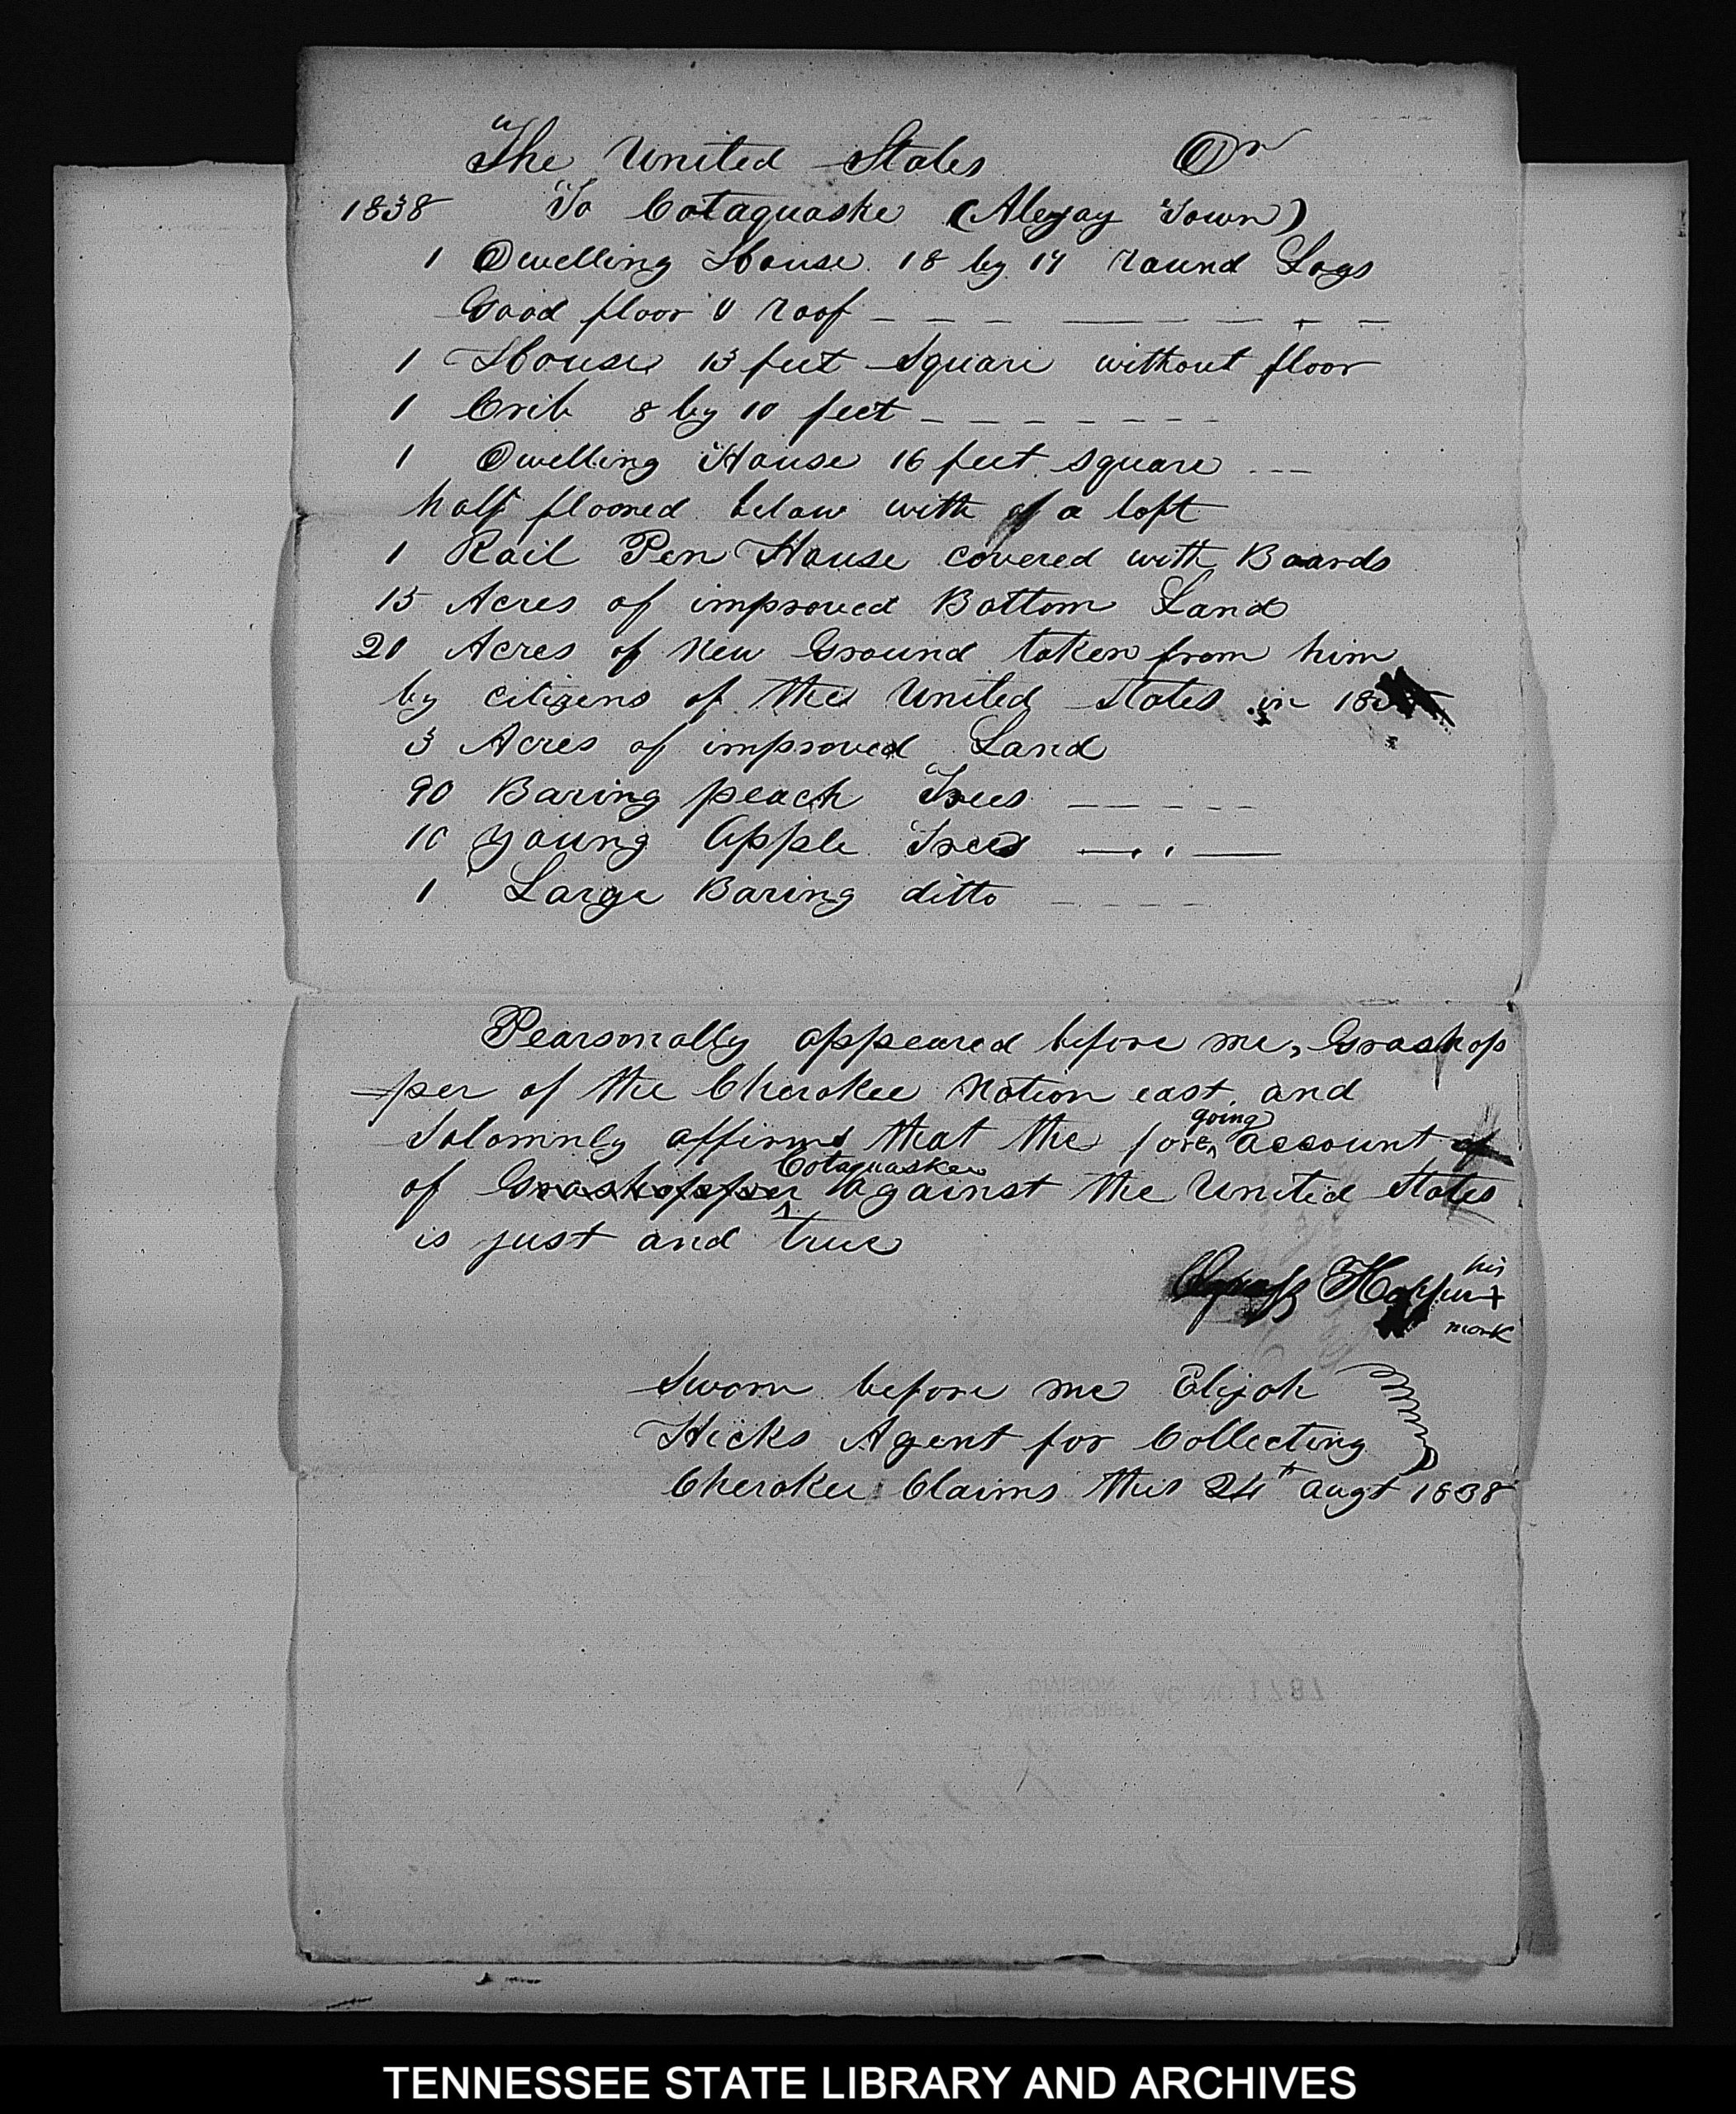 The United States Dr
1838 To Cotaquaske (Alejay Town)
1 Dwelling House 18 by 14 round Logs
Good floor & roof
1 House 13 feet Square without floor
1 Crib 8 by 10 feet
1 Dwelling House 16 feet square
half floored below with of a loft
1 Rail Pen House covered with Boards
15 Acres of improved Bottom Land
20 Acres of New Ground taken from him
by citizens of the United States in 183
3 Acres of improved Land
90 Baring peach Trees
10 young Apple Trees
1 Large Baring ditto
Pearsonally appeared before me, Grashop
per of the Cherokee Nation east, and
Solomnly affirms that the foregoing account
of Grashopper Cotaquaskee against the United States
is just and true
Grass Hopper his
+
mark
Sworn before me Elijah
Hicks Agent for Collecting
Cherokee Claims this 24th augt 1838
TENNESSEE STATE LIBRARY AND ARCHIVES